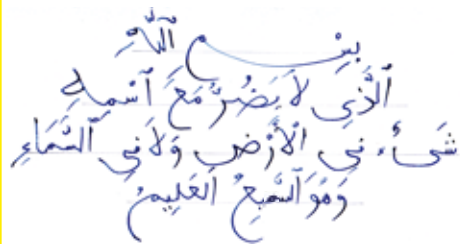 بِسْمِ ٱللَّهِ
ٱلَّذِي لَا يَضُرُّ مَعَ ٱسْمِهِ
شَىْءٌ فِي ٱلْأَرْضِ وَلَا فِي ٱلسَّمَاءِ
وَهُوَ ٱلسَّمِيعُ ٱلْعَلِيمُ